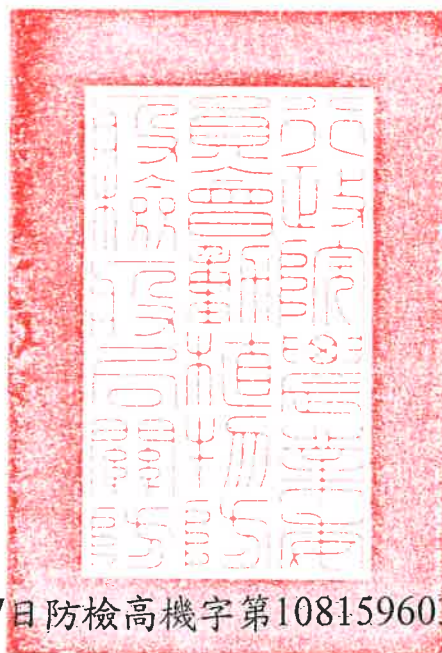 行政院農業委
員會動植物防
疫檢疫局關防
日防檢高機字第10815960